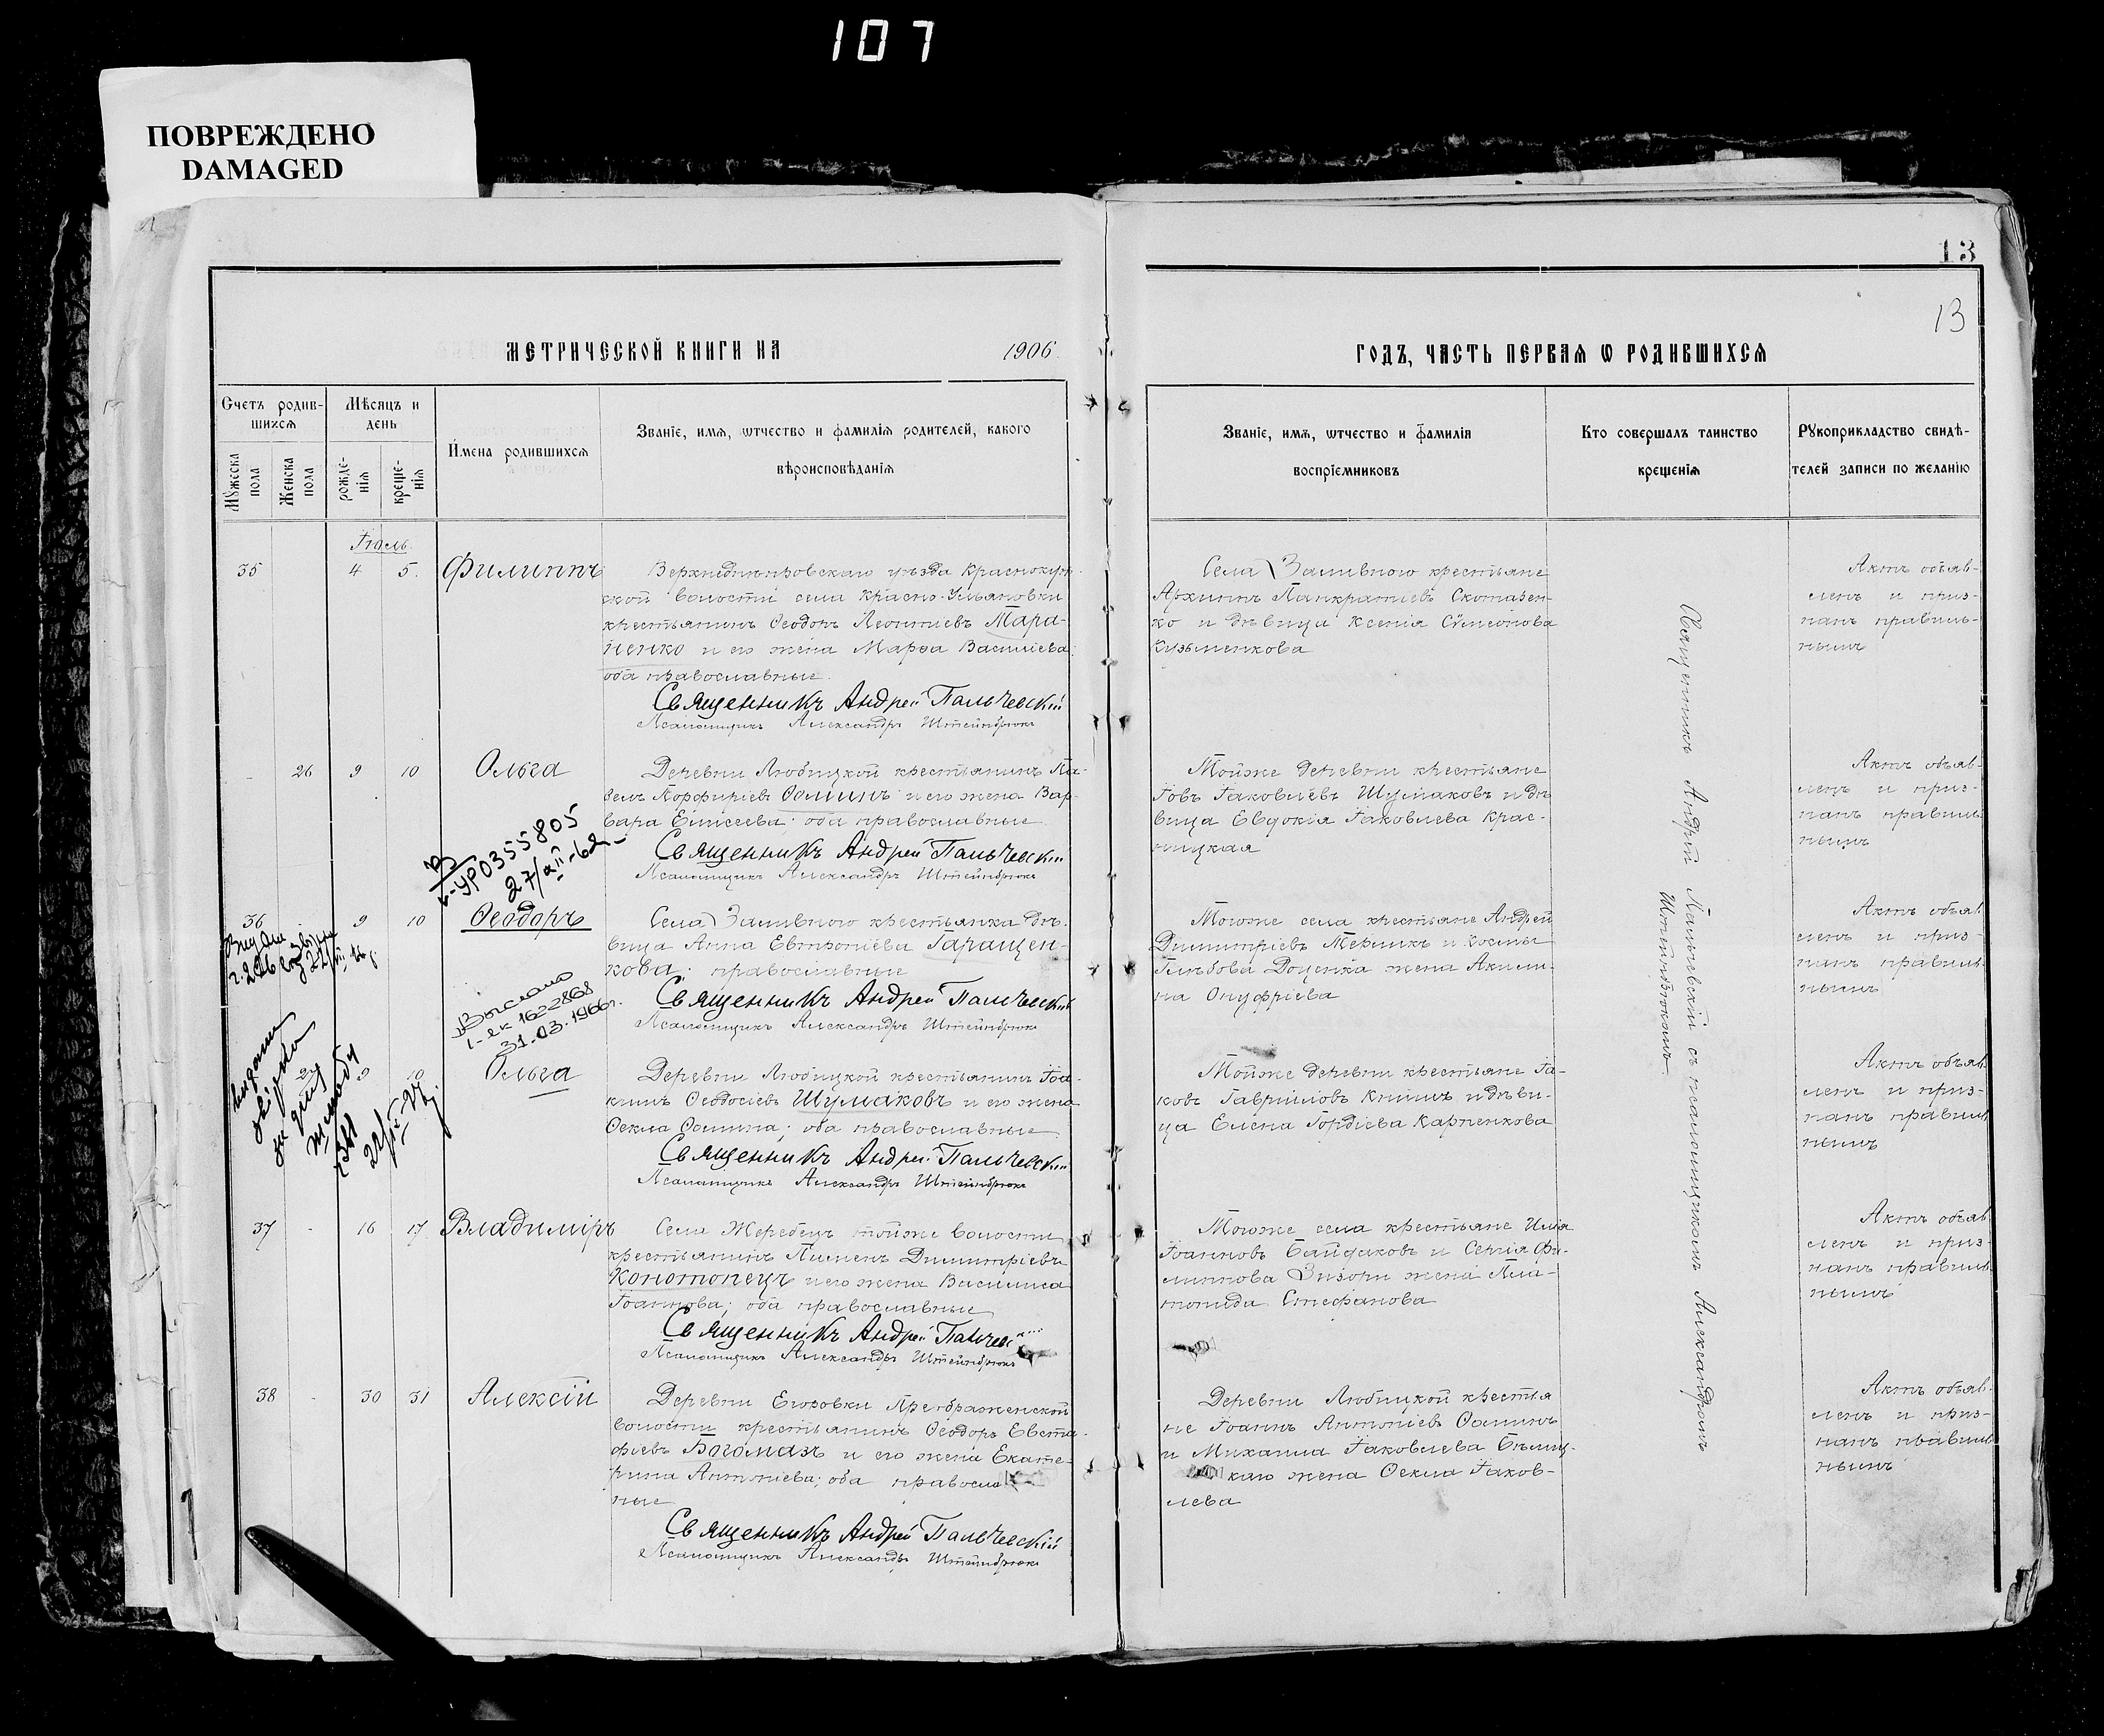 107
ПОВРЕЖДЕНО
DAMAGED
13
13
МЕТРИЧЕСКОЙ КНИГИ НА 1906
ГОДЪ, ЧАСТЬ ПЕРВАЯ Ѡ РОДИВШИХСЯ
Счетъ родив-
шихся
Мѣсяцъ и
день
Мужеска
пола
Женска
пола
рожде-
нія
креще-
нія
Имена родившихся
Званіе, имя, ѡтчество и фамилія родителей, какого
вѣроисповѣданія
Званіе, имя, ѡтчество и фамилія
воспріемниковъ
Кто совершалъ таинство
крещенія
Рукоприкладство свидѣ-
телей записи по желанію
Іюль
35 4 5. Филиппъ
Верхнеднѣпровскаго уѣзда Краснокут-
ской волости села Красно-Ульяновки
крестьянинъ Ѳеодоръ Леонтіевъ Тара-
ненко и его жена Марѳа Василіева;
оба православные.
Священникъ Андрей Пальчевскій
Псаломщикъ Александръ Штейнбрюкъ
Села Заливного крестьяне
Архиппъ Панкратіевъ Скотаренко-
ко и дѣвица Ксенія Сѵмеонова
Кузьменкова
Актъ объяв-
ленъ и приз-
нанъ правиль-
нымъ
26 9 10 Ольга
Деревни Любицкой крестьянинъ Па-
велъ Порфиріевъ Осминъ и его жена Вар-
вара Елисеева; оба православные
Священникъ Андрей Пальчевскій
Псаломщикъ Александръ Штейнбрюкъ
Тойже деревни крестьяне
Іовъ Іаковлевъ Шумаковъ и дѣ
вица Евдокія Іаковлева Крас-
ницкая
Актъ объяв-
ленъ и приз-
нанъ правиль
нымъ
УР0355805
36 9 10 Ѳеодоръ
Села Заливного крестьянка дѣ-
вица Анна Евтропіева Гаращен-
кова; православные
Священникъ Андрей Пальчевскій
Псаломщикъ Александръ Штейнбрюкъ
Тогоже села крестьяне Андрей
Димитріевъ Терликъ и Космы
Глѣбова Доценка жена Акили-
на Онуфріева
Актъ объяв
ленъ и приз-
нанъ правиль
нымъ
Выслано
1-ЕК 1622868
31.03.1966г.
9 10 Ольга
Деревни Любицкой крестьянинъ Іоа-
кимъ Ѳеодосіевъ Шумаковъ и его жена
Ѳекла Осмина; оба православные
Священникъ Андрей Пальчевскій
Псаломщикъ Александръ Штейнбрюкъ
Тойже деревни крестьяне Іа-
ковъ Гавриловъ Книшъ и дѣви-
ца Елена Гордіева Карпенкова
Актъ объяв
ленъ и приз-
нанъ правиль
нымъ
37 - 16 17 Владиміръ
Села Жеребецъ тойже волости
крестьянинъ Пименъ Димитріевъ
Конотопецъ и его жена Василиса
Іоаннова; оба православные
Священникъ Андрей Пальчевскій
Псаломщикъ Александръ Штейнбрюкъ
Тогоже села крестьяне Илія
Іоанновъ Байдаковъ и Сергія Фи-
липпова жена Пла-
тонида Стефанова
Актъ объяв
ленъ и приз-
нанъ правиль
нымъ
38 - 30 31 Алексій
Деревни Егоровки Преображенской
волости крестьянинъ Ѳеодоръ Евста-
фіевъ Богомазъ и его жена Екате-
рина Антоніева; оба правосла
ные
Священникъ Андрей Пальчевскій
Псаломщикъ Александръ Штейнбрюкъ
Деревни Любицкой крестья
не Іоаннъ Антоніевъ Осминъ
и Михаила Іаковлева Бѣлиц-
каго жена Ѳекла Іаков-
лева
Актъ объяв-
ленъ и приз-
нанъ правиль
нымъ
Священникъ Андрей Пальчевскій съ псаломщикомъ Александромъ
Штейнбрюкомъ